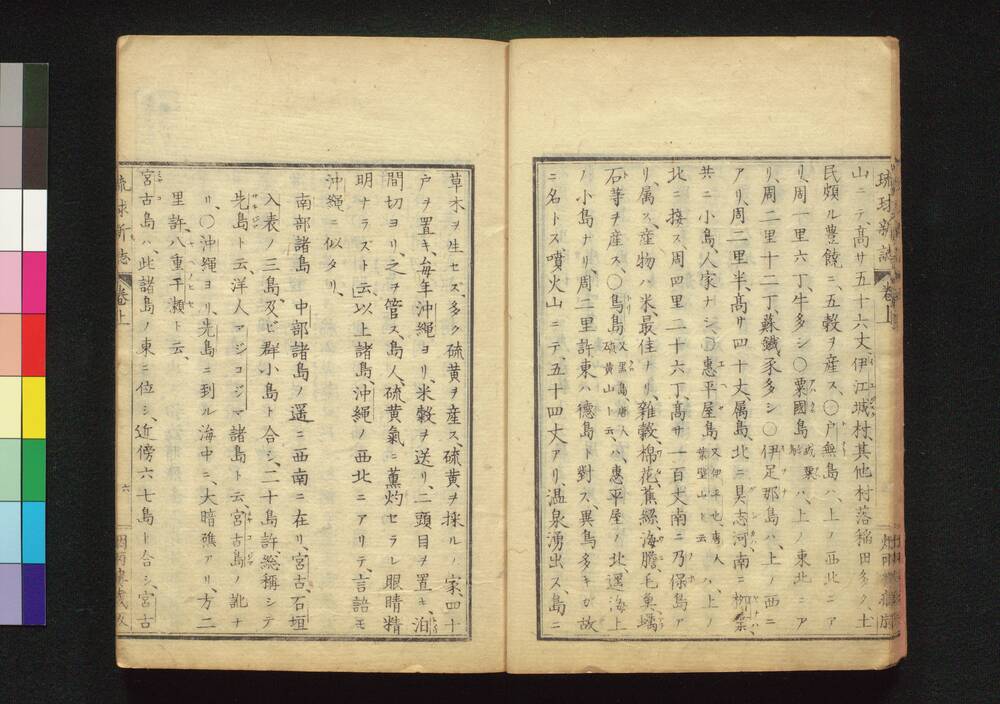 琉球新誌 卷上
山ニテ高サ五十六丈伊江城村其他村落稲田多ク、土
民頗ル豊饒ニ、五穀ヲ産ス、〇戸無島ハ、上ノ西北ニア
リ、周一里六丁、牛多シ〇粟國島ハ、上ノ東北ニア
リ、周二里十二丁、蘇鐵豕多シ〇伊足那島ハ、上ノ西ニ
アリ、周二里半、高サ四十丈、属島、北ニ具志河南ニ柳葉
共ニ小島人家ナシ、〇惠平屋島又伊平也唐人葉壁山ト云ハ上ノ
北ニ接ス、周四里二十六丁、高サ一百丈南ニ乃保島ア
リ、属ス、産物ハ米、最佳ナリ、雜穀、棉花、蕉繆、海膽、毛魚、蠣
石等ヲ産ス、〇鳥島又黒島、唐人硫黄山ト云、ハ、惠平屋ノ北、遥海上
ノ小島ナリ、周二里許東ハ德島ト對ス、異鳥多キガ故
ニ名トス噴火山ニテ、五十四丈アリ、温泉湧出ス、島ニ
草木ヲ生セズ、多ク硫黄ヲ産ス、硫黄ヲ採ルノ家、四十
戸ヲ置キ、毎年沖繩ヨリ、米穀ヲ送リ、二頭目ヲ置キ、泊
間切ヨリ、之ヲ管ス島人、硫黄氣ニ薫灼セラレ眼睛精
明ナラズト云以上諸島、沖繩ノ西北ニアリテ、言語モ
沖繩ニ似タリ、
南部諸島 中部諸島ノ遥ニ西南ニ在リ、宮古、石垣
入表ノ三島、及ビ群小島ト合シ、二十島許、総稱シテ
先島ト云洋人マジコジマ諸島ト云、宮古島ノ訛ナ
リ、〇沖繩ヨリ、先島ニ到ル海中ニ、大暗礁アリ、方二
里許、八重干瀬ト云、
宮古島ハ、此諸島ノ東ニ位シ近傍六七島ト合シ、宮古
琉球新志 卷上 六